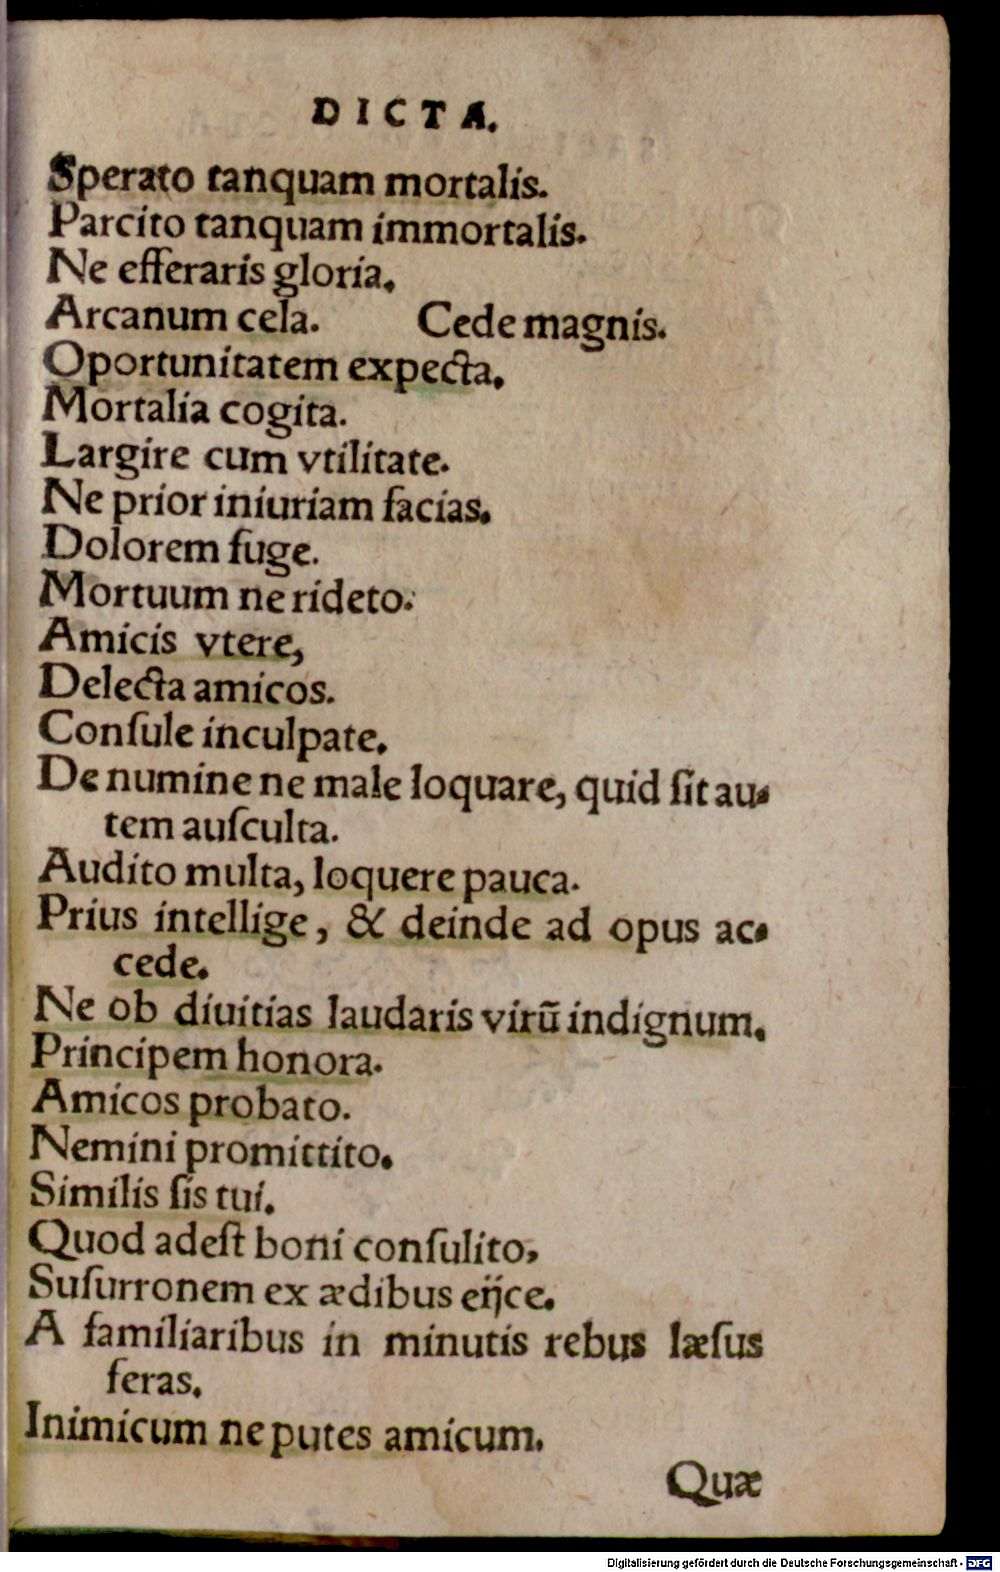 DICTA.
Sperato tanquam mortalis.
Parcito tanquam immortalis.
Ne efferaris gloria.
Arcanum cela. Cede magnis.
Oportunitatem expecta.
Mortalia cogita.
Largire cum vtilitate.
Ne prior iniuriam facias.
Dolorem fuge.
Mortuum ne rideto.
Amicis vtere,
Delecta amicos.
Conſule inculpate.
De numine ne male loquare, quid ſit au-
tem auſculta.
Audito multa, loquere pauca.
Prius intellige, & deinde ad opus ac-
cede.
Ne ob diuitias laudaris virũ indignum.
Principem honora.
Amicos probato.
Nemini promittito.
Similis ſis tui.
Quod adeſt boni conſulito,
Suſurronem ex ædibus eijce.
A familiaribus in minutis rebus læſus
feras.
Inimicum ne putes amicum.
Quæ
Digitalisierung gefördert durch die Deutsche Forschungsgemeinschaft - DFG